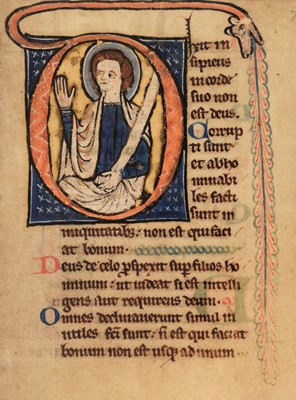 Dixit in
sipiens
in corde
suo non
est deus.
Corrup
ti sunt
et abho
minabi
les facti
sunt in
iniquitatib; non est qui faci
at bonum.
Deus de celo pspexit sup filios ho
minum: ut uideat si est intelli
gens aut requirens deum.
Omnes declinauerunt simul in
utiles fci sunt: si est qui faciat
bonum non est usq; ad unum.